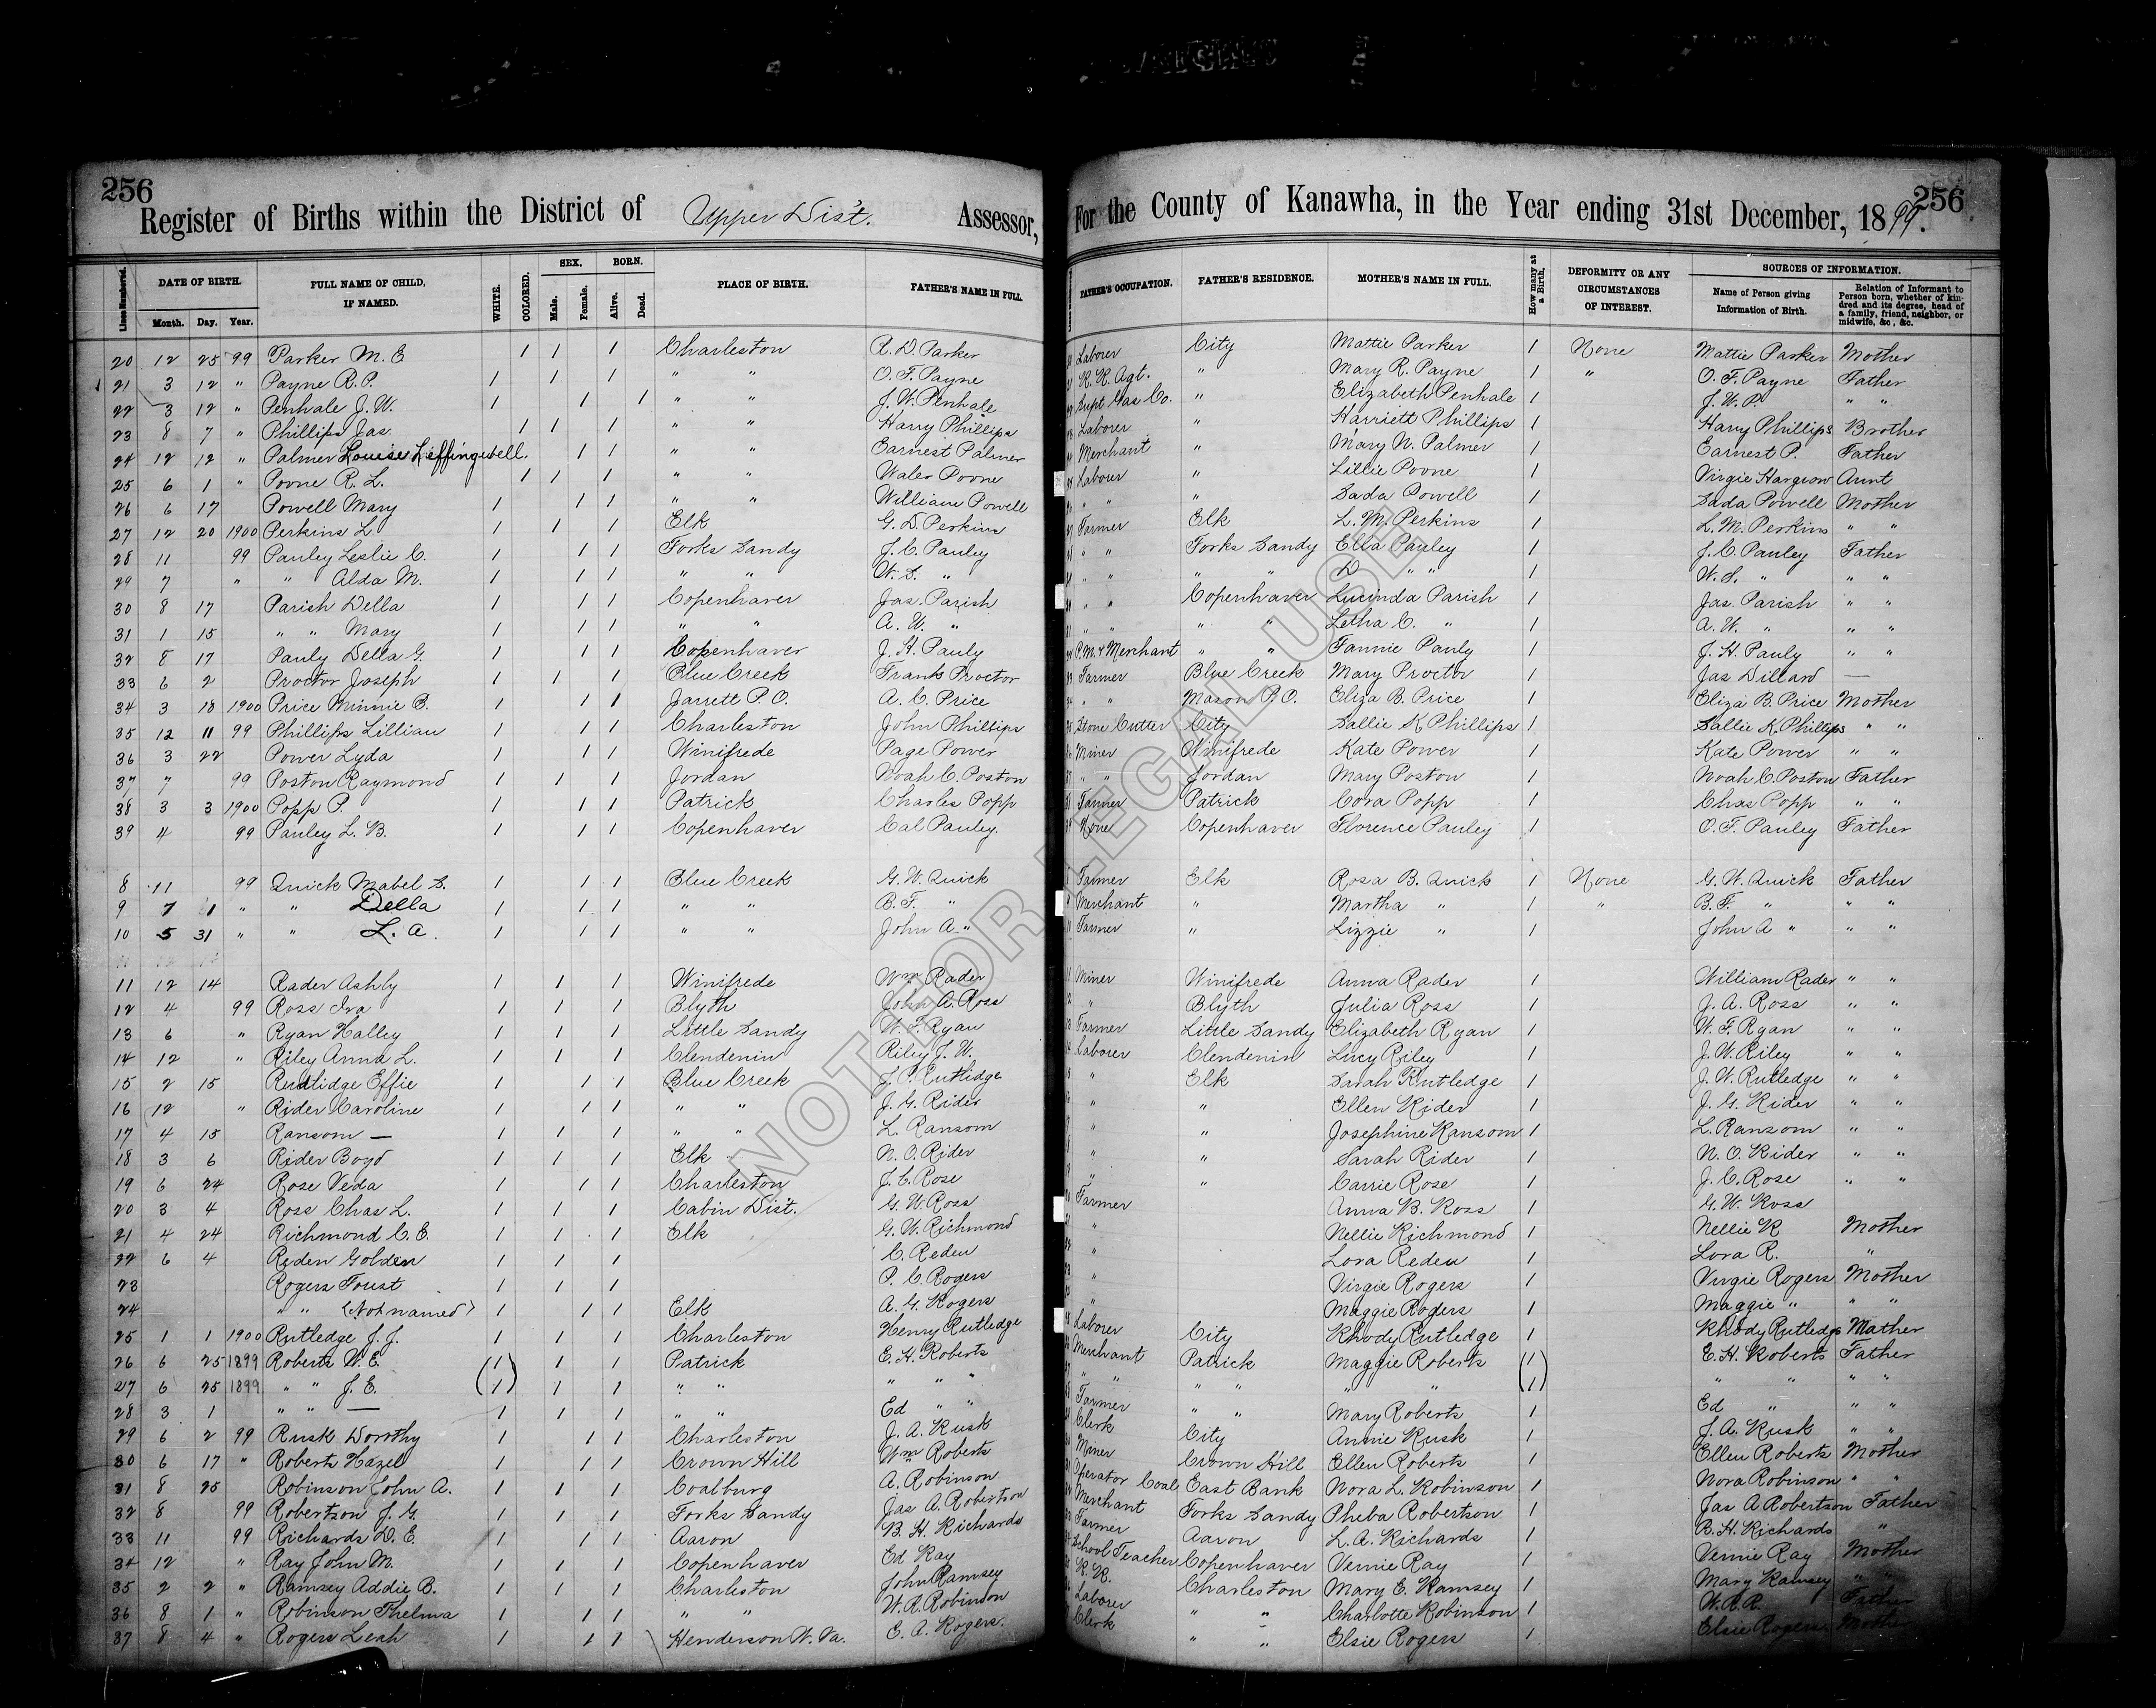 256
Register of Births within the District of Upper Dist. Assessor,
For the County of Kanawha, in the Year ending 31st December, 1899.
256
Lines Numbered. DATE OF BIRTH. Month. Day. Year. FULL NAME OF CHILD, IF NAMED. WHITE. COLORED. SEX. Male. Female. BORN. Alive. Dead. PLACE OF BIRTH. FATHER'S NAME IN FULL.
FATHER'S OCCUPATION. FATHER'S RESIDENCE. MOTHER'S NAME IN FULL. How many at a Birth. DEFORMITY OR ANY CIRCUMSTANCES OF INTEREST. SOURCES OF INFORMATION. Name of Person giving Information of Birth. Relation of Informant to Person born, whether of kindred and its degree, head of a family, friend, neighbor, or midwife, &c., &c.
20 12 25 99 Parker M. E 1 1 1 Charleston A. D. Parker Laborer City Mattie Parker 1 None Mattie Parker Mother
21 3 12 " Payne R. P. 1 1 1 " " O. F. Payne R. R. Agt. " Mary R. Payne 1 " O. F. Payne Father
22 3 12 " Penhale J. W. 1 1 1 " " J. W. Penhale Supt Gas Co. " Elizabeth Penhale 1 J. W. P. " "
23 8 7 " Phillips Jas. 1 1 1 " " Harry Phillips Laborer " Harriett Phillips 1 Harry Phillips Brother
24 12 12 " Palmer Louise Leffingwell. 1 1 " " Earnest Palmer Merchant " Mary N. Palmer 1 Earnest P. Father
25 6 1 " Povne R. L. 1 1 1 " " Waler Povne Laborer " Lillie Povne 1 Virgie Hargrow Aunt
26 6 17 Powell Mary 1 1 1 " " William Powell " " " Sada Powell 1 Sada Powell Mother
27 12 20 1900 Perkins L. 1 1 1 Elk G. D. Perkins Farmer Elk L. M. Perkins 1 L. M. Perkins " "
28 11 99 Pauley Leslie C. 1 1 1 Forks Sandy J. C. Pauley " " Forks Sandy Ella Pauley 1 J. C. Pauley Father
29 7 " " Alda M. 1 1 1 " " W. S. " " " " " D " " 1 W. S. " " "
30 8 17 Parish Della 1 1 1 Copenhaver Jas. Parish " " Copenhaver Lucinda Parish 1 Jas. Parish " "
31 1 15 " " Mary 1 1 1 " " A. W. " " " " " Letha C. " 1 A. W. " " "
32 8 17 Pauly Della G. 1 1 1 Copenhaver J. H. Pauly P. M. & Merchant " " Fannie Pauly 1 J. H. Pauly " "
33 6 2 Proctor Joseph 1 1 1 Blue Creek Frank Proctor Farmer Blue Creek Mary Proctor 1 Jas Dillard —
34 3 18 1900 Price Minnie B. 1 1 1 Jarrett P. O. A. C. Price " " Mason P. O. Eliza B. Price 1 Eliza B. Price Mother
35 12 11 99 Phillips Lillian 1 1 1 Charleston John Phillips Stone Cutter City Sallie K Phillips 1 Sallie K Phillips " "
36 3 22 Power Lyda 1 1 1 Winifrede Page Power Miner Winifrede Kate Power 1 Kate Power " "
37 7 99 Poston Raymond 1 1 1 Jordan Noah C. Poston " " Jordan Mary Poston 1 Noah C. Poston Father
38 3 3 1900 Popp P. 1 1 1 Patrick Charles Popp Farmer Patrick Cora Popp 1 Chas Popp " "
39 4 99 Pauley L. B. 1 1 1 Copenhaver Cal Pauley. None Copenhaver Florence Pauley 1 O. F. Pauley Father
8 11 99 Quick Mabel S. 1 1 1 Blue Creek G. W. Quick Farmer Elk Rosa B. Quick 1 None G. W. Quick Father
9 7 1 " " Della 1 1 1 " " B. F. " Merchant " Martha " 1 " B. F. " " "
10 5 31 " " L. a. 1 1 1 " " John A. " Farmer " Lizzie " 1 John A " " "
11 12 14 Rader Ashby 1 1 1 Winifrede Wm Rader Miner Winifrede Anna Rader 1 William Rader " "
12 4 99 Ross Ira 1 1 1 Blyth John A. Ross " Blyth Julia Ross 1 J. A. Ross " "
13 6 " Ryan Halley 1 1 1 Little Sandy W. F. Ryan Farmer Little Sandy Elizabeth Ryan 1 W. F. Ryan " "
14 12 " Riley Anna L. 1 1 1 Clendenin Riley J. W. Laborer Clendenin Lucy Riley 1 J. W. Riley " "
15 2 15 Rutlidge Effie 1 1 1 Blue Creek J. P. Rutlidge " Elk Sarah Rutledge 1 J. W. Rutledge " "
16 12 " Rider Caroline 1 1 1 " " J. G. Rider " " Ellen Rider 1 J. G. Rider " "
17 4 15 Ransom — 1 1 1 " " L. Ransom " " Josephine Ransom 1 L. Ransom " "
18 3 6 Rider Boyd 1 1 1 Elk N. O. Rider " " Sarah Rider 1 N. O. Rider " "
19 6 24 Rose Veda 1 1 1 Charleston J. C. Rose " " Carrie Rose 1 J. C. Rose " "
20 3 4 Ross Chas L. 1 1 1 Cabin Dist. G. W. Ross Farmer Anna B. Ross 1 G. W. Ross
21 4 24 Richmond C. E. 1 1 1 Elk G. W. Richmond " Nellie Richmond 1 Nellie R Mother
22 6 4 Reden Golden 1 1 1 C. Reden " Lora Reden 1 Lora R. "
23 Rogers Foust 1 1 1 P. C. Rogers " Virgie Rogers 1 Virgie Rogers Mother
24 " " (Not named) 1 1 1 Elk A. G. Rogers " Maggie Rogers 1 Maggie " " "
25 1 1 1900 Rutledge J. J. 1 1 1 Charleston Henry Rutledge Laborer City Rhody Rutledge 1 Rhody Rutledge Mather
26 6 25 1899 Roberts W. E. 1 1 1 Patrick E. H. Roberts Merchant Patrick Maggie Roberts 1 E. H. Roberts Father
27 6 25 1899 " " J. E. 1 1 1 " " " " " " " " " " " 1 " " " "
28 3 1 " " — 1 1 1 " " Ed " " Farmer " " Mary Roberts 1 Ed " " "
29 6 2 99 Rusk Dorothy 1 1 1 Charleston J. A. Rusk Clerk City Annie Rusk 1 J. A. Rusk " "
30 6 17 " Roberts Hazel 1 1 1 Crown Hill Wm Roberts Miner Crown Hill Ellen Roberts 1 Ellen Roberts Mother
31 8 25 Robinson John A. 1 1 1 Coalburg A. Robinson Operator Coal East Bank Nora L. Robinson 1 Nora Robinson " "
32 8 99 Robertson J. G. 1 1 1 Forks Sandy Jas A. Robertson Merchant Forks Sandy Pheba Robertson 1 Jas A Robertson Father
33 11 99 Richards D. E. 1 1 1 Aaron B. H. Richards Farmer Aaron L. A. Richards 1 B. H. Richards "
34 12 " Ray John M. 1 1 1 Copenhaver Ed Ray School Teacher Copenhaver Vernie Ray 1 Vernie Ray Mother
35 2 2 " Ramsey Addie B. 1 1 1 Charleston John Ramsey R. R. Charleston Mary E. Ramsey 1 Mary Ramsey " "
36 8 1 " Robinson Thelma 1 1 1 " " W. R. Robinson Laborer " " Charlotte Robinson 1 W. R. R. Father
37 8 4 " Rogers Leah 1 1 1 Henderson W. Va. E. A. Rogers. Clerk " " Elsie Rogers 1 Elsie Rogers Mother
NOT FOR LEGAL USE